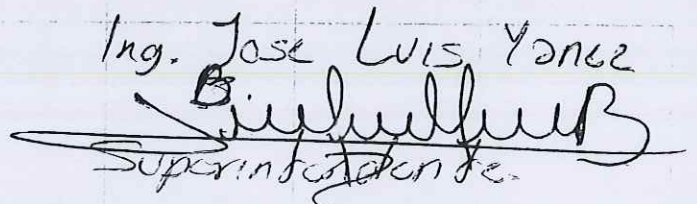 Ing. Jose Luis Yanez
B.
Superintendente.